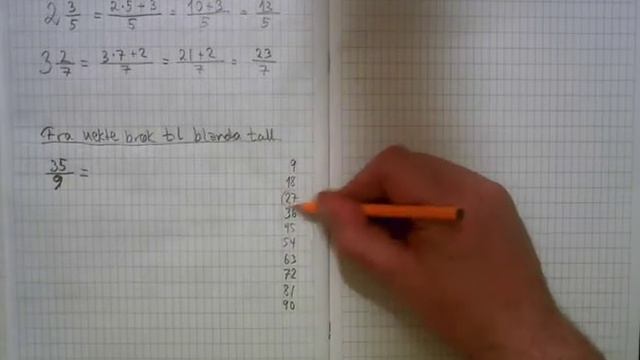 2 3/5 = 2·5+3/5 = 10+3/5 = 13/5
3 2/7 = 3·7+2/7 = 21+2/7 = 23/7
Fra uekte brøk til blanda tall
35/9 =
9
18
27
36
45
54
63
72
81
90